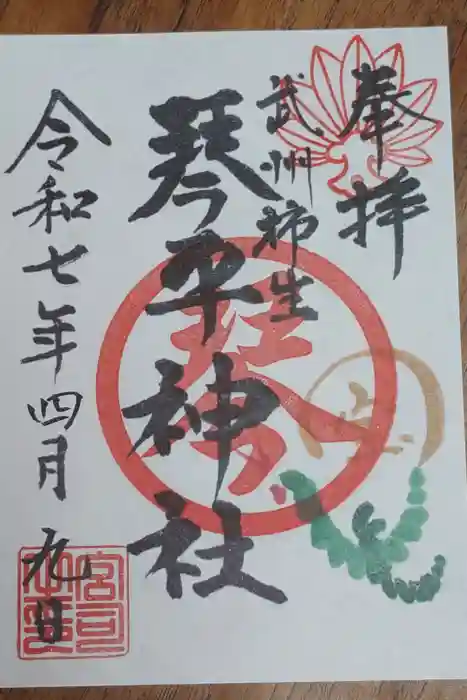 奉拝
武州柿生
琴平神社
令和七年四月九日